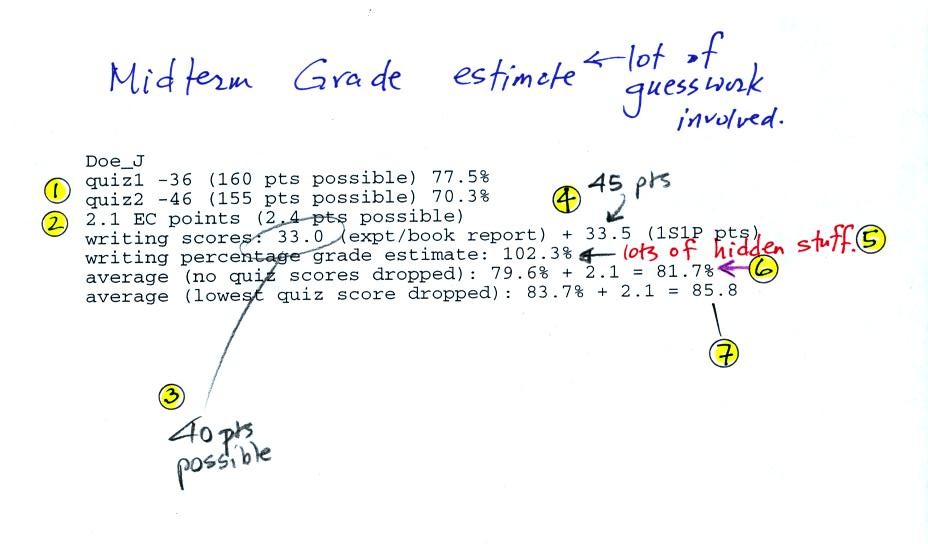 Midterm Grade estimate ← lot of
guesswork
involved.
Doe_J
① quiz1 -36 (160 pts possible) 77.5%
quiz2 -46 (155 pts possible) 70.3%
④ 45 pts
② 2.1 EC points (2.4 pts possible)
writing scores: 33.0 (expt/book report) + 33.5 (1S1P pts)
writing percentage grade estimate: 102.3% ← lots of hidden stuff. ⑤
average (no quiz scores dropped): 79.6% + 2.1 = 81.7% ← ⑥
average (lowest quiz score dropped): 83.7% + 2.1 = 85.8
⑦
③
40 pts
possible